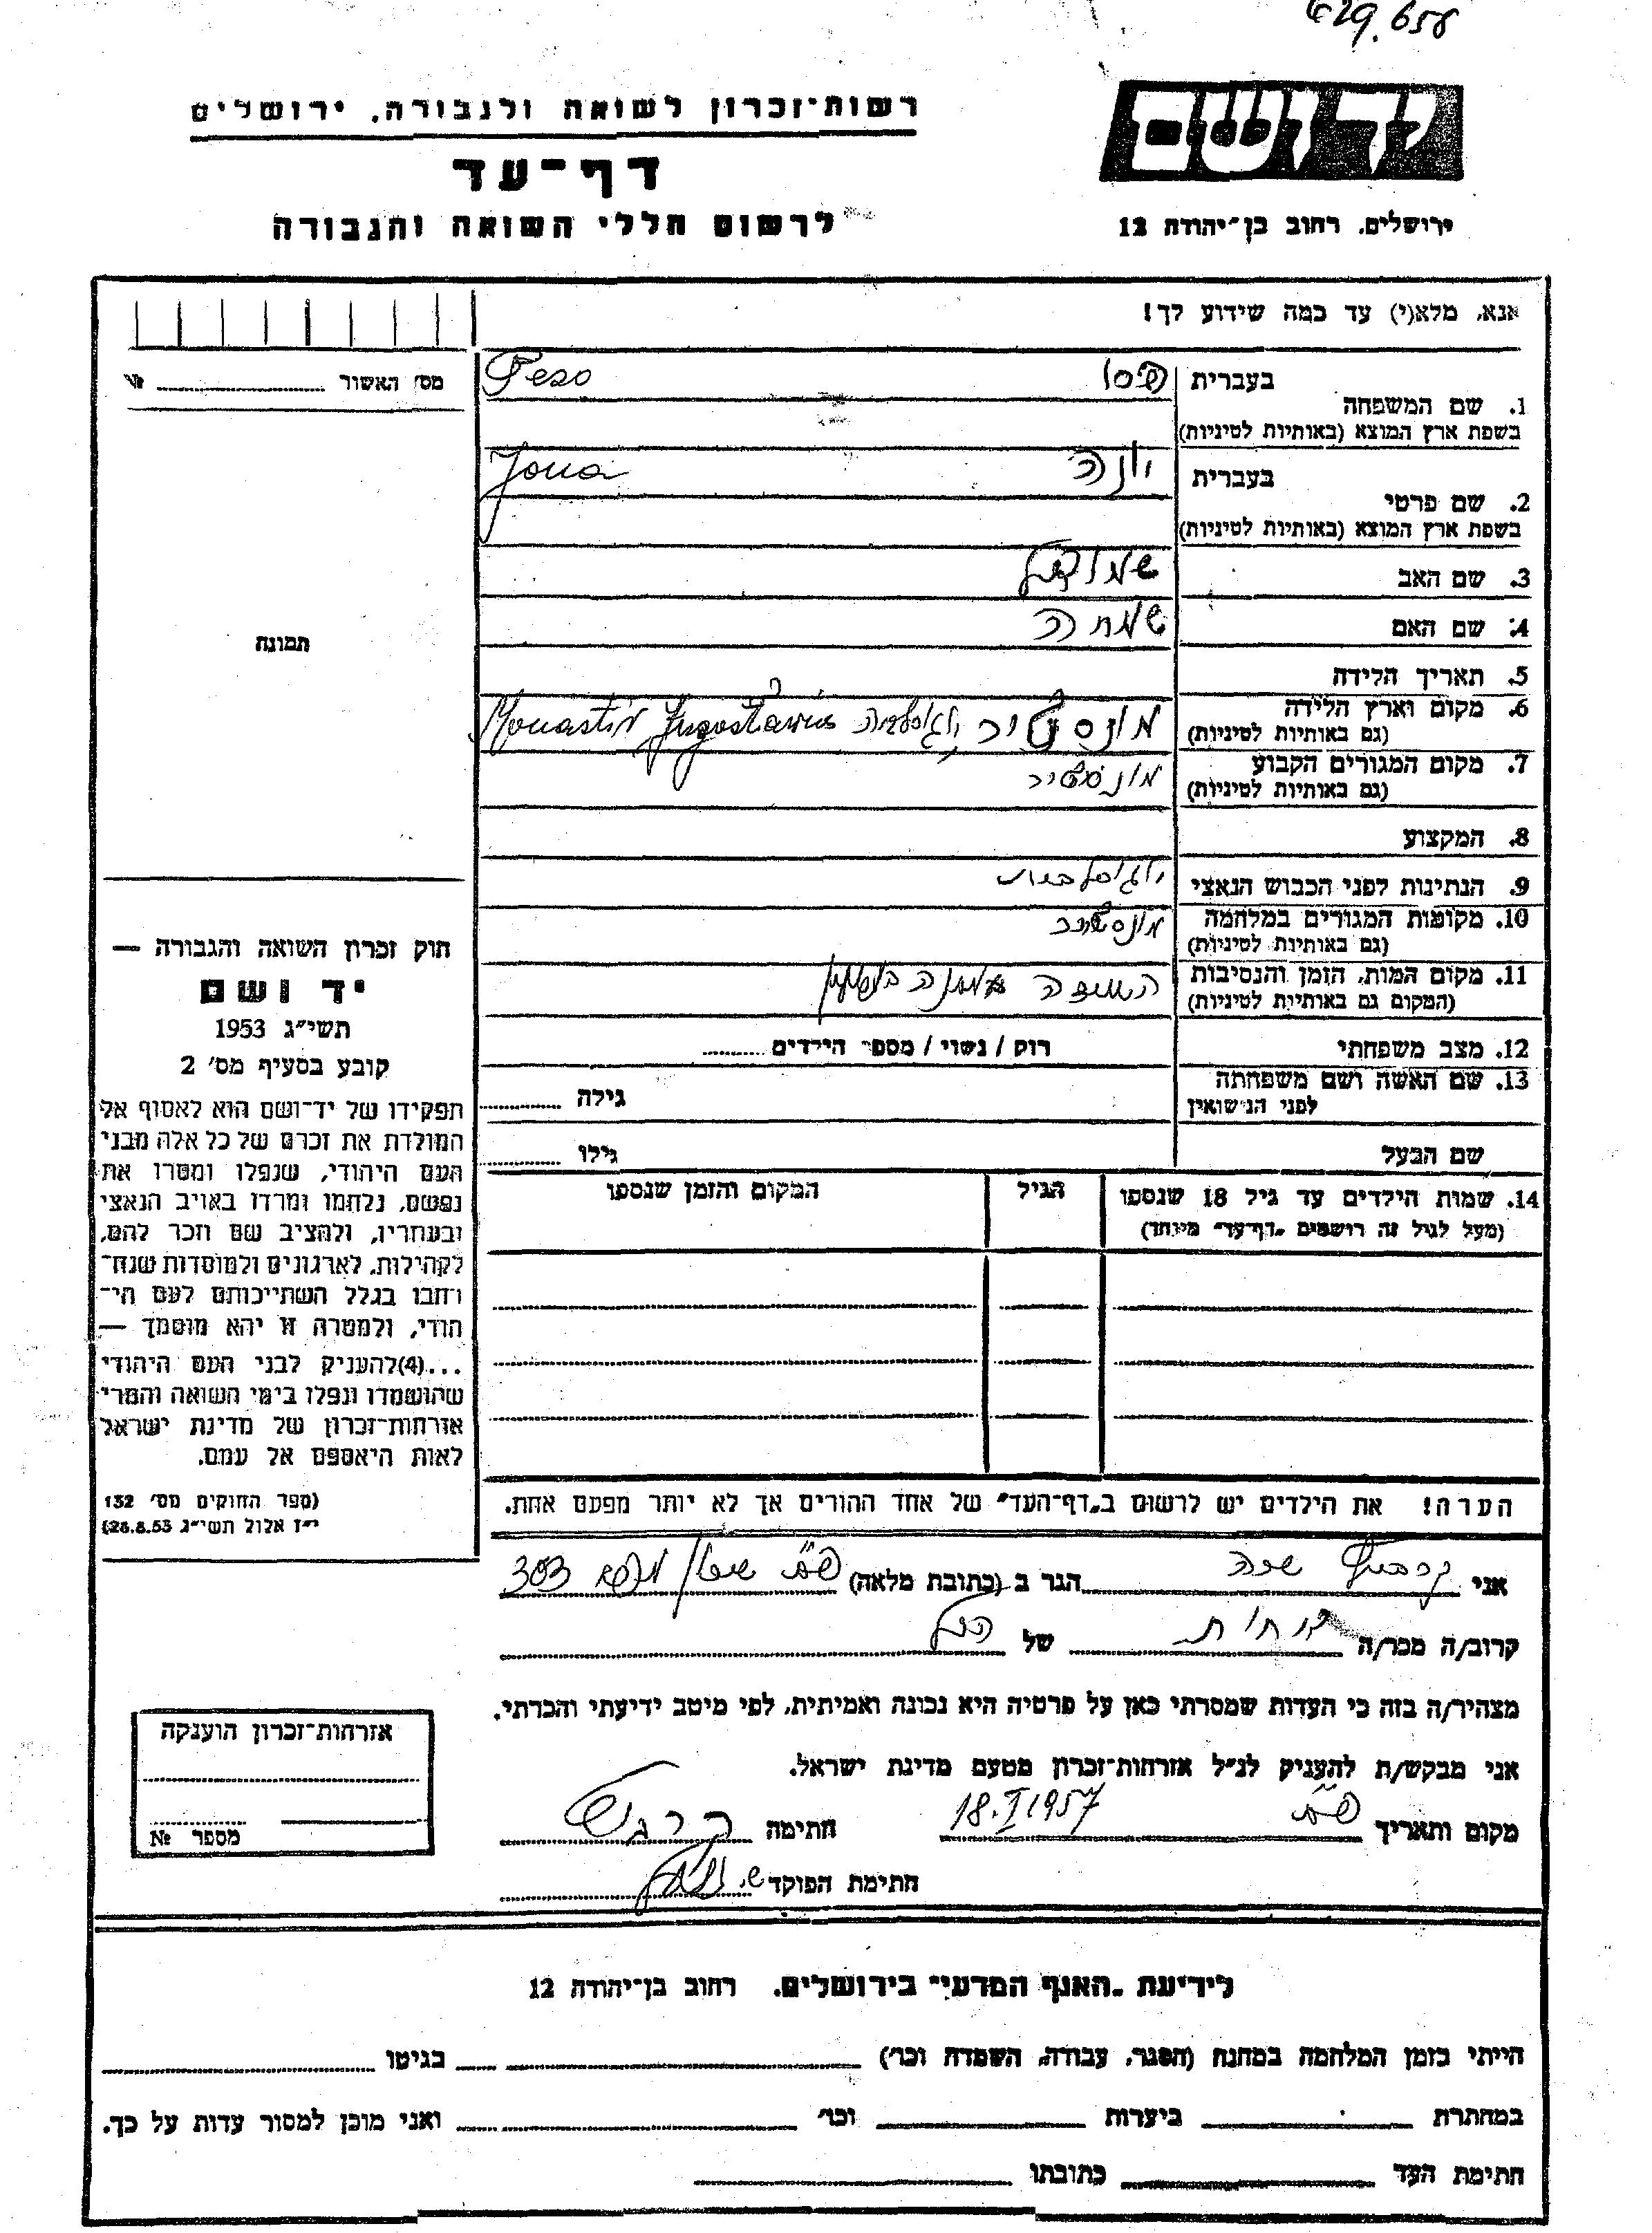 629.658
רשות־זכרון לשואה ולגבורה, ירושלים
יד ושם
דף־עד
לרשום חללי השואה והגבורה
ירושלים, רחוב בן־יהודה 12
אנא, מלא(י) עד כמה שידוע לך!
מס׳ האשור № ..........
תמונה
בעברית פסו Peso
1. שם המשפחה
בשפת ארץ המוצא (באותיות לטיניות)
בעברית יונה Jona
2. שם פרטי
בשפת ארץ המוצא (באותיות לטיניות)
3. שם האב שמואל
4. שם האם שמחה
5. תאריך הלידה
6. מקום וארץ הלידה מונסטיר יוגוסלביה Monastir Jugoslavia
(גם באותיות לטיניות)
7. מקום המגורים הקבוע מונסטיר
(גם באותיות לטיניות)
8. המקצוע
9. הנתינות לפני הכבוש הנאצי יוגוסלבית
10. מקומות המגורים במלחמה מונסטיר
(גם באותיות לטיניות)
11. מקום המות, הזמן והנסיבות
(המקום גם באותיות לטיניות)
12. מצב משפחתי רוק / נשוי / מספר הילדים ..........
13. שם האשה ושם משפחתה גילה ..........
לפני הנישואין
שם הבעל גילו ..........
14. שמות הילדים עד גיל 18 שנספו הגיל המקום והזמן שנספו
(מעל לגיל זה רושמים „דף־עד" מיוחד)
חוק זכרון השואה והגבורה —
יד ושם
תשי״ג 1953
קובע בסעיף מס׳ 2
תפקידו של יד־ושם הוא לאסוף אל
המולדת את זכרם של כל אלה מבני
העם היהודי, שנפלו ומסרו את
נפשם, נלחמו ומרדו באויב הנאצי
ובעוזריו, ולהציב שם וזכר להם,
לקהילות, לארגונים ולמוסדות שנח־
רבו בגלל השתייכותם לעם הי־
הודי, ולמטרה זו יהא מוסמך —
...(4)להעניק לבני העם היהודי
שהושמדו ונפלו בימי השואה והמרי
אזרחות־זכרון של מדינת ישראל
לאות היאספם אל עמם.
(ספר החוקים מס׳ 132
י״ז אלול תשי״ג 28.8.53)
הערה! את הילדים יש לרשום ב„דף־העד" של אחד ההורים אך לא יותר מפעם אחת.
אני שרה הגר ב (כתובת מלאה) 303
קרוב/ה מכר/ה אחות של הנ״ל
מצהיר/ה בזה כי העדות שמסרתי כאן על פרטיה היא נכונה ואמיתית, לפי מיטב ידיעתי והכרתי.
אני מבקש/ת להעניק לנ״ל אזרחות־זכרון מטעם מדינת ישראל.
מקום ותאריך 18.I 1957 חתימה
חתימת הפוקד
אזרחות־זכרון הוענקה
מספר №
לידיעת „האגף המדעי" בירושלים, רחוב בן־יהודה 12
הייתי בזמן המלחמה במחנה (הסגר, עבודה, השמדה וכו׳) .......... בגיטו ..........
במחתרת .......... ביערות .......... וכו׳ .......... ואני מוכן למסור עדות על כך.
חתימת העד .......... כתובתו ..........